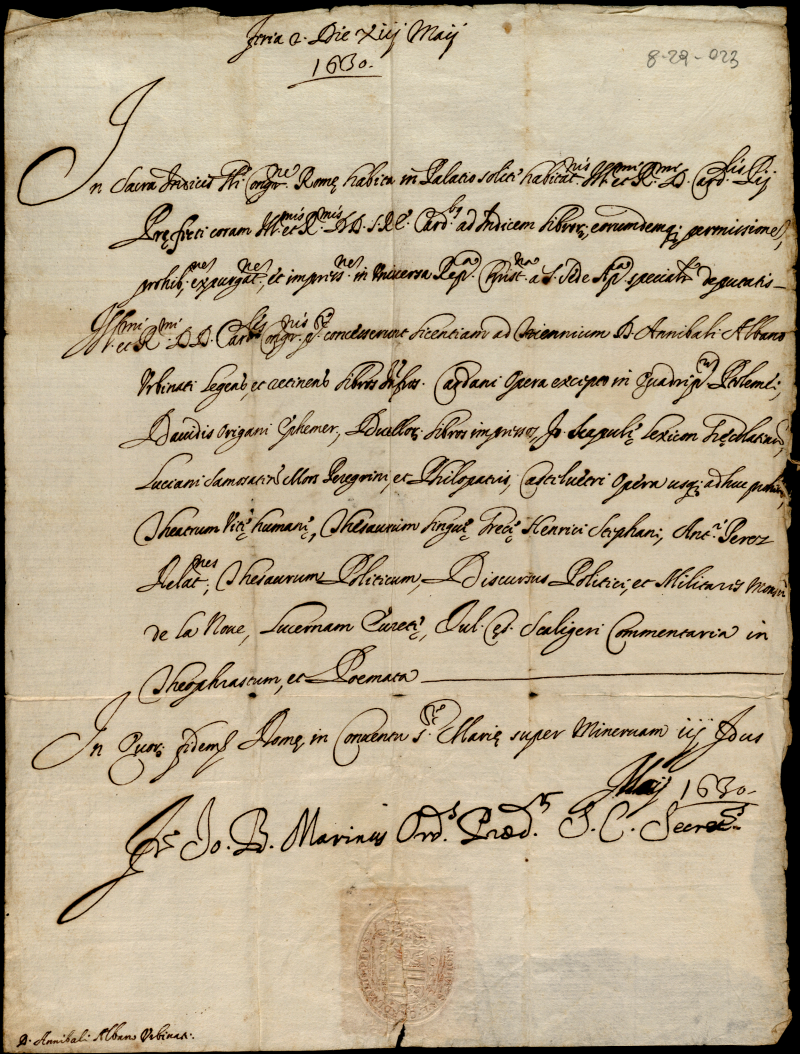 Feria 2. Die xiij Maij
1630.
8-29-023
In Sacra Indicis Ill. Congr.ne Romę habita in Palatio solitę habitat.nis Ill.mi et R.mi D. Card.lis Pij
Pręfecti coram Ill.mis et R.mis DD. S.R.E. Card.bs ad Indicem librorẓ, eorumdemq; permissionẽ,
prohib.nes, expurgat.nes, et impress.nes in Universa Rep.ca Christ.na a S. Sede Ap.ca specialr deputatis
Ill.mi et R.mi DD. Card.les Congr.nis concesserunt licentiam ad triennium D. Annibali Albano
Urbinati Legendi, et retinendi libros infros. Cardani Opera excepto in Quadrip. Ptolemęi,
Davidis Origani Ephemer., Duellorẓ libros impressos, Jo. Scapulę Lexicon Gręcolatinũ,
Luciani Samosatensis Mors Peregrini, et Philopatris, Castiluetri Opera usq; adhuc prohibita,
Theatrum Vitę humanę, Thesaurum linguę Gręcę Henrici Stephani, Ant. Perez
Relat.nes, Thesaurum Politicum, Discursus Politici, et Militaris Monsr.
de la Noue, Lucernam Euretę, Jul. Cęs. Scaligeri Commentaria in
Theophrastum, et Poemata
In Quorẓ fidem Romę in Conventu S. Marię super Minervam iij Idus
Maij 1630.
Fr. Jo. B. Marinus Ord.s Præd.m S. C. Secret.s
D. Annibali Albano Urbinati.